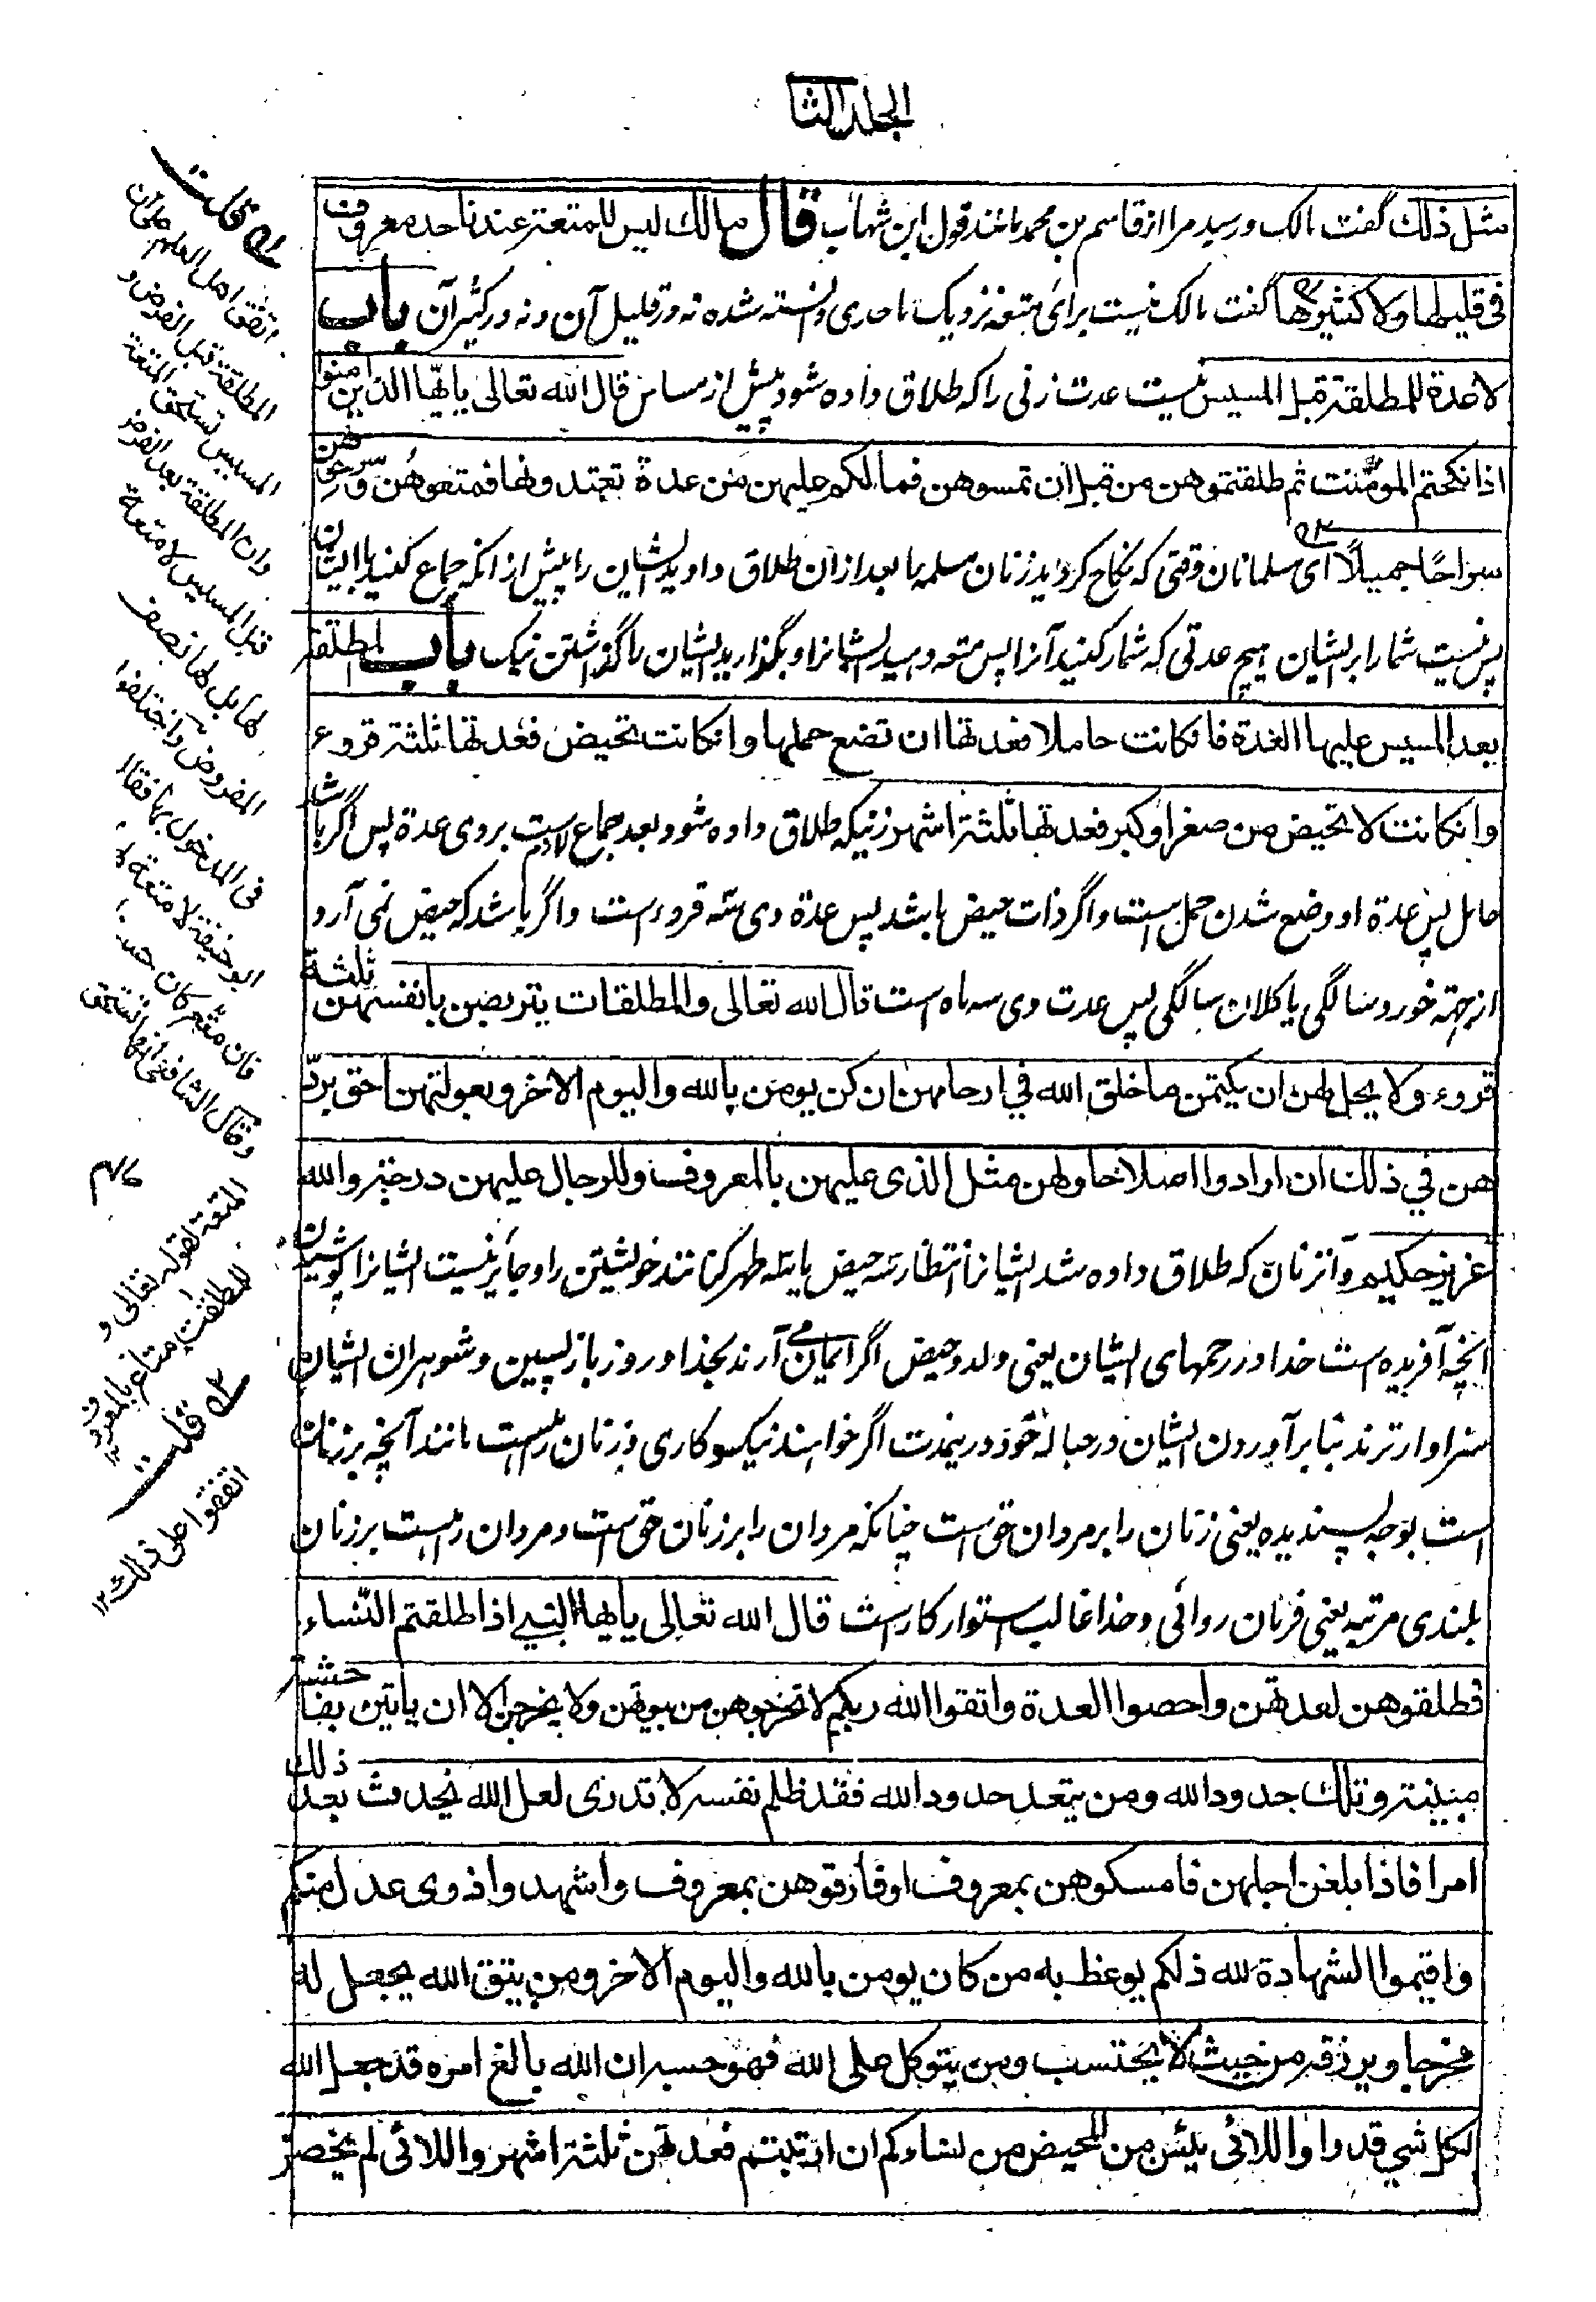 الجلد الثا
مثل ذلك گفت مالک ورسید مرا از قاسم بن محمد مانند قول ابن شهاب قال مالك ليس للمتعة عندنا حد معروف
فى قليلها ولا كثيرها گفت مالک نیست برای متعه نزدیک ما حدی دانسته شده نه در قلیل آن ونه در کثیر آن باب
لاعدة للمطلقة قبل المسيس نیست عدت زنی را که طلاق داده شود پیش از مساس قال الله تعالى يايها الذين امنوا
اذا نكحتم المؤمنت ثم طلقتموهن من قبل ان تمسوهن فما لكم عليهن من عدة تعتدونها فمتعوهن وسرحوهن
سراحا جميلا ای مسلمانان وقتی که نکاح کردید زنان مسلمه را بعد ازان طلاق دادید ایشان را پیش از انکه جماع کنید با ایشان
پس نیست شما را بر ایشان هیچ عدتی که شمار کنید آنرا پس متعه دهید ایشانرا و بگذارید ایشان را گذاشتن نیک باب المطلقة
بعد المسيس عليها العدة فان كانت حاملا فعدتها ان تضع حملها وانكانت تحيض فعدتها ثلثة قروء
وانكانت لا تحيض من صغر او كبر فعدتها ثلثة اشهر زنیکه طلاق داده شود بعد جماع لازم است بروی عدة پس اگر باشد
حامل پس عدة او وضع شدن حمل است واگر ذات حیض باشد پس عدة وی سه قروء است واگر باشد که حیض نمی آرد
از جهته خورد سالگی یا کلان سالگی پس عدت وی سه ماه است قال الله تعالى والمطلقات يتربصن بانفسهن ثلثة
قروء ولا يحل لهن ان يكتمن ما خلق الله في ارحامهن ان كن يومن بالله واليوم الاخر وبعولتهن احق برد
هن في ذلك ان ارادوا اصلاحا ولهن مثل الذى عليهن بالمعروف وللرجال عليهن درجة والله
عزيز حكيم وآن زنان که طلاق داده شد ایشانرا انتظار سه حیض یا سه طهر کنانند خویشتن را وجایز نیست ایشانرا پوشیدن
انچه آفریده است خدا در رحمهای ایشان یعنی ولد وحیض اگر ایمان می آرند بخدا وروز باز پسین وشوهران ایشان
سزاوارترند بباز آوردن ایشان در حباله خود درینمدت اگر خواهند نیکوکاری وزنان راست مانند آنچه بر زنان
است بوجه پسندیده یعنی زنان را بر مردان حق است چنانکه مردان را بر زنان حق است ومردان راست بر زنان
بلندی مرتبه یعنی فرمان روائی وخدا غالب استوار کار است قال الله تعالى يايها النبي اذا طلقتم النساء
فطلقوهن لعدتهن واحصوا العدة واتقوا الله ربكم لا تخرجوهن من بيوتهن ولا يخرجن الا ان ياتين بفاحشة
مبينة وتلك حدود الله ومن يتعد حدود الله فقد ظلم نفسه لا تدرى لعل الله يحدث بعد ذلك
امرا فاذا بلغن اجلهن فامسكوهن بمعروف او فارقوهن بمعروف واشهدوا ذوى عدل منكم
واقيموا الشهادة لله ذلكم يوعظ به من كان يومن بالله واليوم الاخر ومن يتق الله يجعل له
مخرجا ويرزقه من حيث لا يحتسب ومن يتوكل على الله فهو حسبه ان الله بالغ امره قد جعل الله
لكل شي قدرا واللائى يئسن من المحيض من نساءكم ان ارتبتم فعدتهن ثلثة اشهر واللائى لم يحضن
قلت
اتفق اهل العلم على ان
المطلقة قبل الفرض و
المسيس تستحق المتعة
وان المطلقة بعد الفرض
قبل المسيس لا متعة
لها بل لها نصف
المفروض واختلفوا
فى المدخول بها فقال
ابو حنيفة لا متعة
فان متع كان حسنا
وقال الشافعى انها تستحق
المتعة لقوله تعالى و
للمطلقت متاع بالمعروف
۱۲
قلت
اتفقوا على ذلك ۱۲